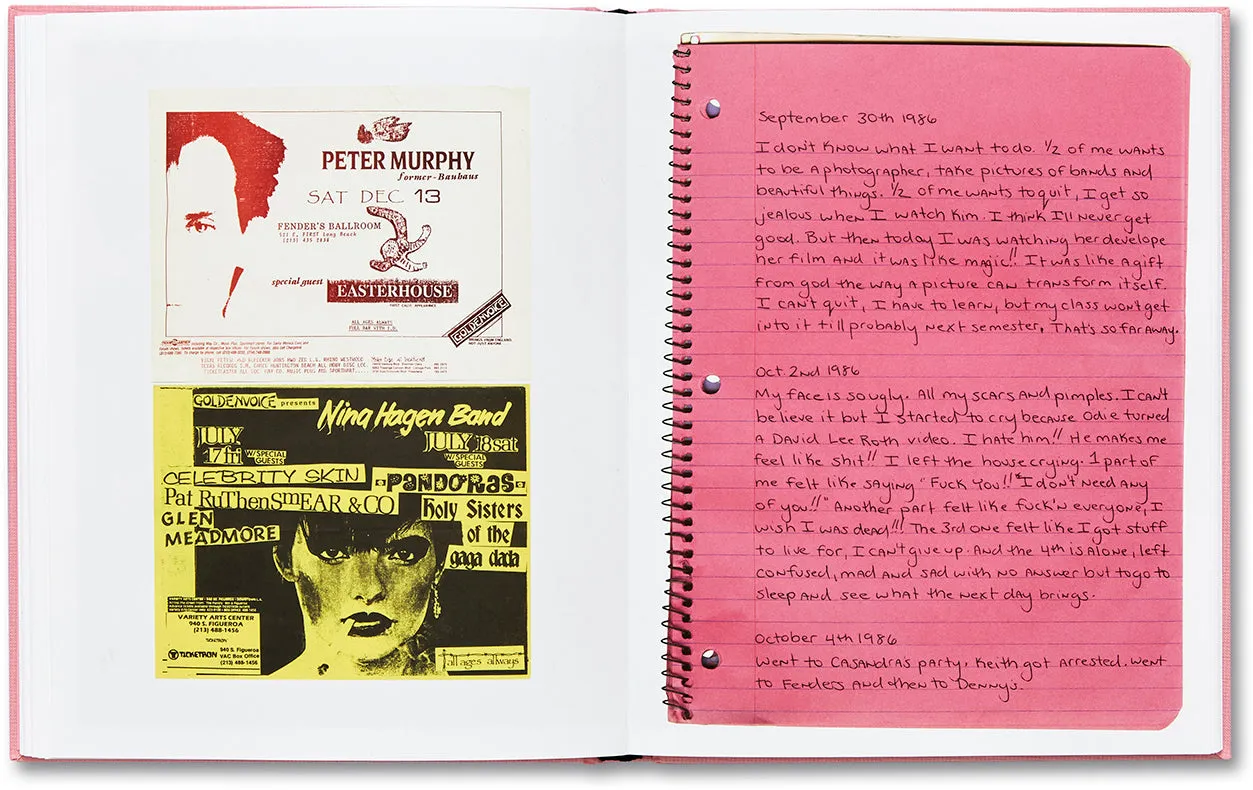 PETER MURPHY
former-Bauhaus
SAT DEC 13
FENDER'S BALLROOM
521 E. FIRST Long Beach
(213) 435 2834
special guest EASTERHOUSE
FIRST CALIF. APPEARANCE
ALL AGES ALWAYS
FULL BAR WITH I.D.
GOLDENVOICE
THINGS FROM ENGLAND
NOT JUST ANYHOW
GOLDENVOICE presents
Nina Hagen Band
JULY
17 fri
W/SPECIAL
GUESTS
JULY 18 sat
W/SPECIAL
GUESTS
CELEBRITY SKIN
Pat RuThenSmEAR & CO
GLEN
MEADMORE
PANDORAS
Holy Sisters
of the
gaga dada
VARIETY ARTS CENTER
940 S. FIGUEROA
(213) 488-1456
TICKETRON
TICKETRON
940 S. Figueroa
VAC Box Office
(213) 488-1456
all ages always
September 30th 1986
I don't know what I want to do. 1/2 of me wants
to be a photographer, take pictures of bands and
beautiful things. 1/2 of me wants to quit, I get so
jealous when I watch Kim. I think I'll never get
good. But then today I was watching her develope
her film and it was like magic!! It was like a gift
from god the way a picture can transform itself.
I can't quit, I have to learn, but my class won't get
into it till probably next semester. That's so far away.
Oct. 2nd 1986
My face is so ugly. All my scars and pimples. I can't
believe it but I started to cry because Odie turned
a David Lee Roth video. I hate him!! He makes me
feel like shit!! I left the house crying. 1 part of
me felt like saying "Fuck You!!" "I don't need any
of you!!" Another part felt like fuck'n everyone, I
wish I was dead!!! The 3rd one felt like I got stuff
to live for, I can't give up. And the 4th is alone, left
confused, mad and sad with no answer but to go to
sleep and see what the next day brings.
October 4th 1986
Went to Casandra's party, Keith got arrested. Went
to Fenders and then to Denny's.